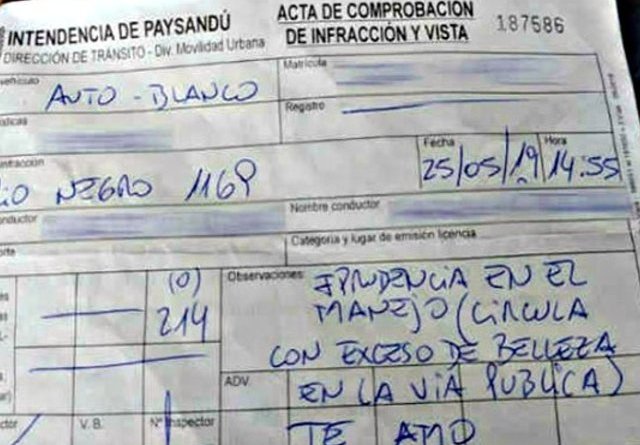 INTENDENCIA DE PAYSANDÚ
DIRECCIÓN DE TRÁNSITO - Div. Movilidad Urbana
ACTA DE COMPROBACIÓN
DE INFRACCIÓN Y VISTA
187586
AUTO - BLANCO
Matrícula
Registro
NEGRO 1169
Fecha
25/05/19
Hora
14:55
Nombre conductor
Categoría y lugar de emisión licencia
(0)
214
Observaciones:
EN EL
MANEJO (CIRCULA
CON EXCESO DE BELLEZA
ADV.
EN LA VIA PUBLICA)
V. B.
Nº Inspector
TE AMO